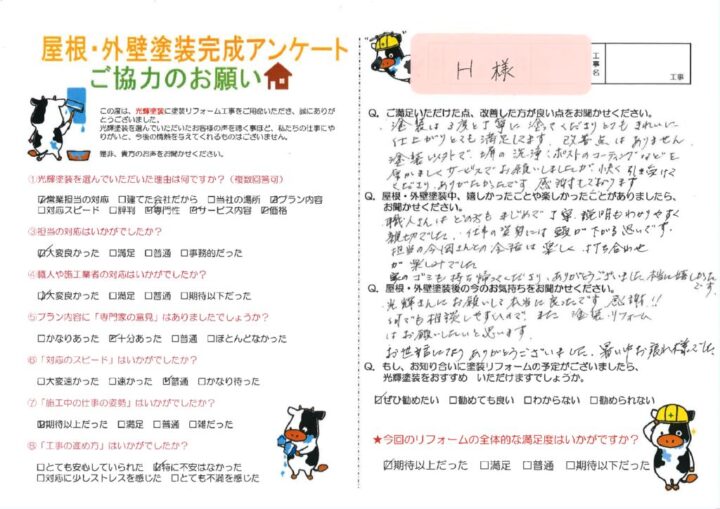 屋根・外壁塗装完成アンケート
ご協力のお願い
この度は、光輝塗装に塗装リフォーム工事をご用命いただき、誠にありが
とうございました。
光輝塗装を選んでいただいたお客様の声を聴く事ほど、私たちの仕事にや
りがいと、今後の情熱を与えてくれるものはございません。
是非、貴方のお声をお聞かせください。
①光輝塗装を選んでいただいた理由は何ですか？（複数回答可）
☑営業担当の対応 □建てた会社だから □当社の場所 ☑プラン内容
□対応スピード □評判 ☑専門性 ☑サービス内容 ☑価格
③担当の対応はいかがでしたか？
☑大変良かった □満足 □普通 □事務的だった
④職人や施工業者の対応はいかがでしたか？
☑大変良かった □満足 □普通 □期待以下だった
⑤プラン内容に「専門家の意見」はありましたでしょうか？
□かなりあった ☑十分あった □普通 □ほとんどなかった
⑥「対応のスピード」はいかがでしたか？
□大変速かった □速かった ☑普通 □かなり待った
⑦「施工中の仕事の姿勢」はいかがでしたか？
☑期待以上だった □満足 □普通 □雑だった
⑧「工事の進め方」はいかがでしたか？
□とても安心していられた ☑特に不安はなかった
□対応に少しストレスを感じた □とても不満を感じた
H 様
工事名
工事
Q. ご満足いただけた点、改善した方が良い点をお聞かせください。
・塗装は3度と丁寧に塗ってくださりとてもきれいに
仕上がりとても満足してます。改善点はありません。
・塗装以外で、塀の洗浄、ポストのコーティングなどを
厚かましくサービスでお願いしましたが快く引き受けて
くださり、ありがたかったです 感謝しております
Q. 屋根・外壁塗装中、嬉しかったことや楽しかったことがありましたら、
お聞かせください。
職人さんはどの方もまじめで丁寧、説明もわかりやすく
親切でした。仕事の姿勢には頭が下がる思いです。
担当の今田さんとの会話は楽しく 打ち合わせ
が楽しみでした
のゴミも持ち帰ってくださり、ありがとうございました 本当に嬉しかった
です。
Q. 屋根・外壁塗装後の今のお気持ちをお聞かせください。
光輝さんにお願いして本当に良かったです 感謝!!
何でも相談しやすいので、また 塗装、リフォーム
はお願いしたいと思います。
お世話になりありがとうございました。暑い中お疲れ様でした
Q. もし、お知り合いに塗装リフォームの予定がございましたら、
光輝塗装をおすすめ いただけますでしょうか。
☑ぜひ勧めたい □勧めても良い □わからない □勧められない
★今回のリフォームの全体的な満足度はいかがですか？
☑期待以上だった □満足 □普通 □期待以下だった